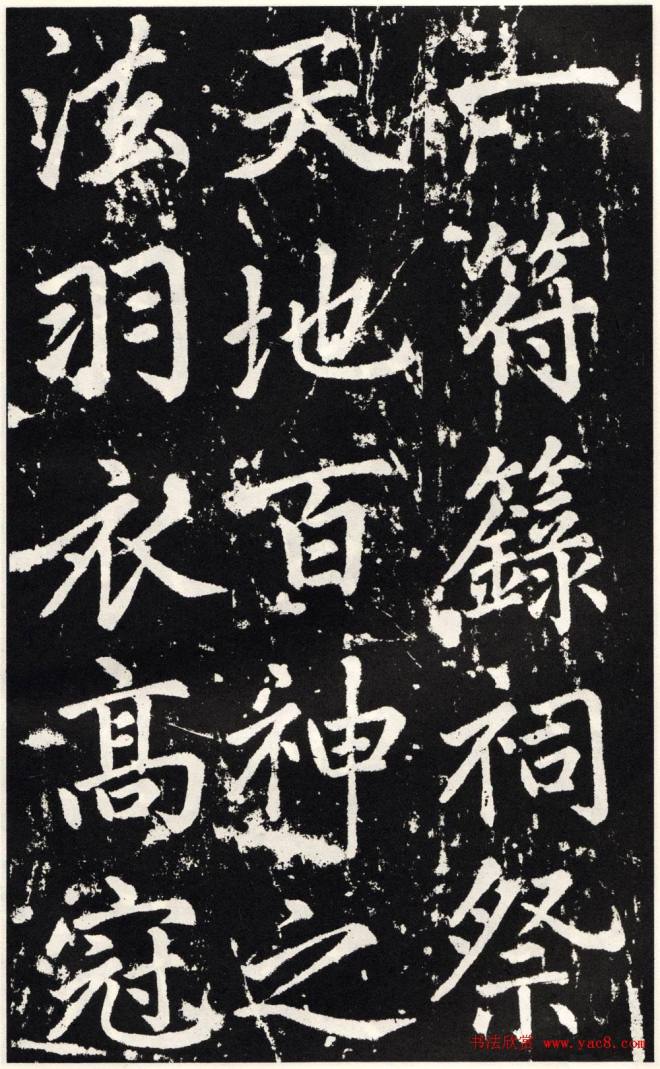 一符籙祠祭
天地百神之
法羽衣高冠
书法欣赏 www.yac8.com